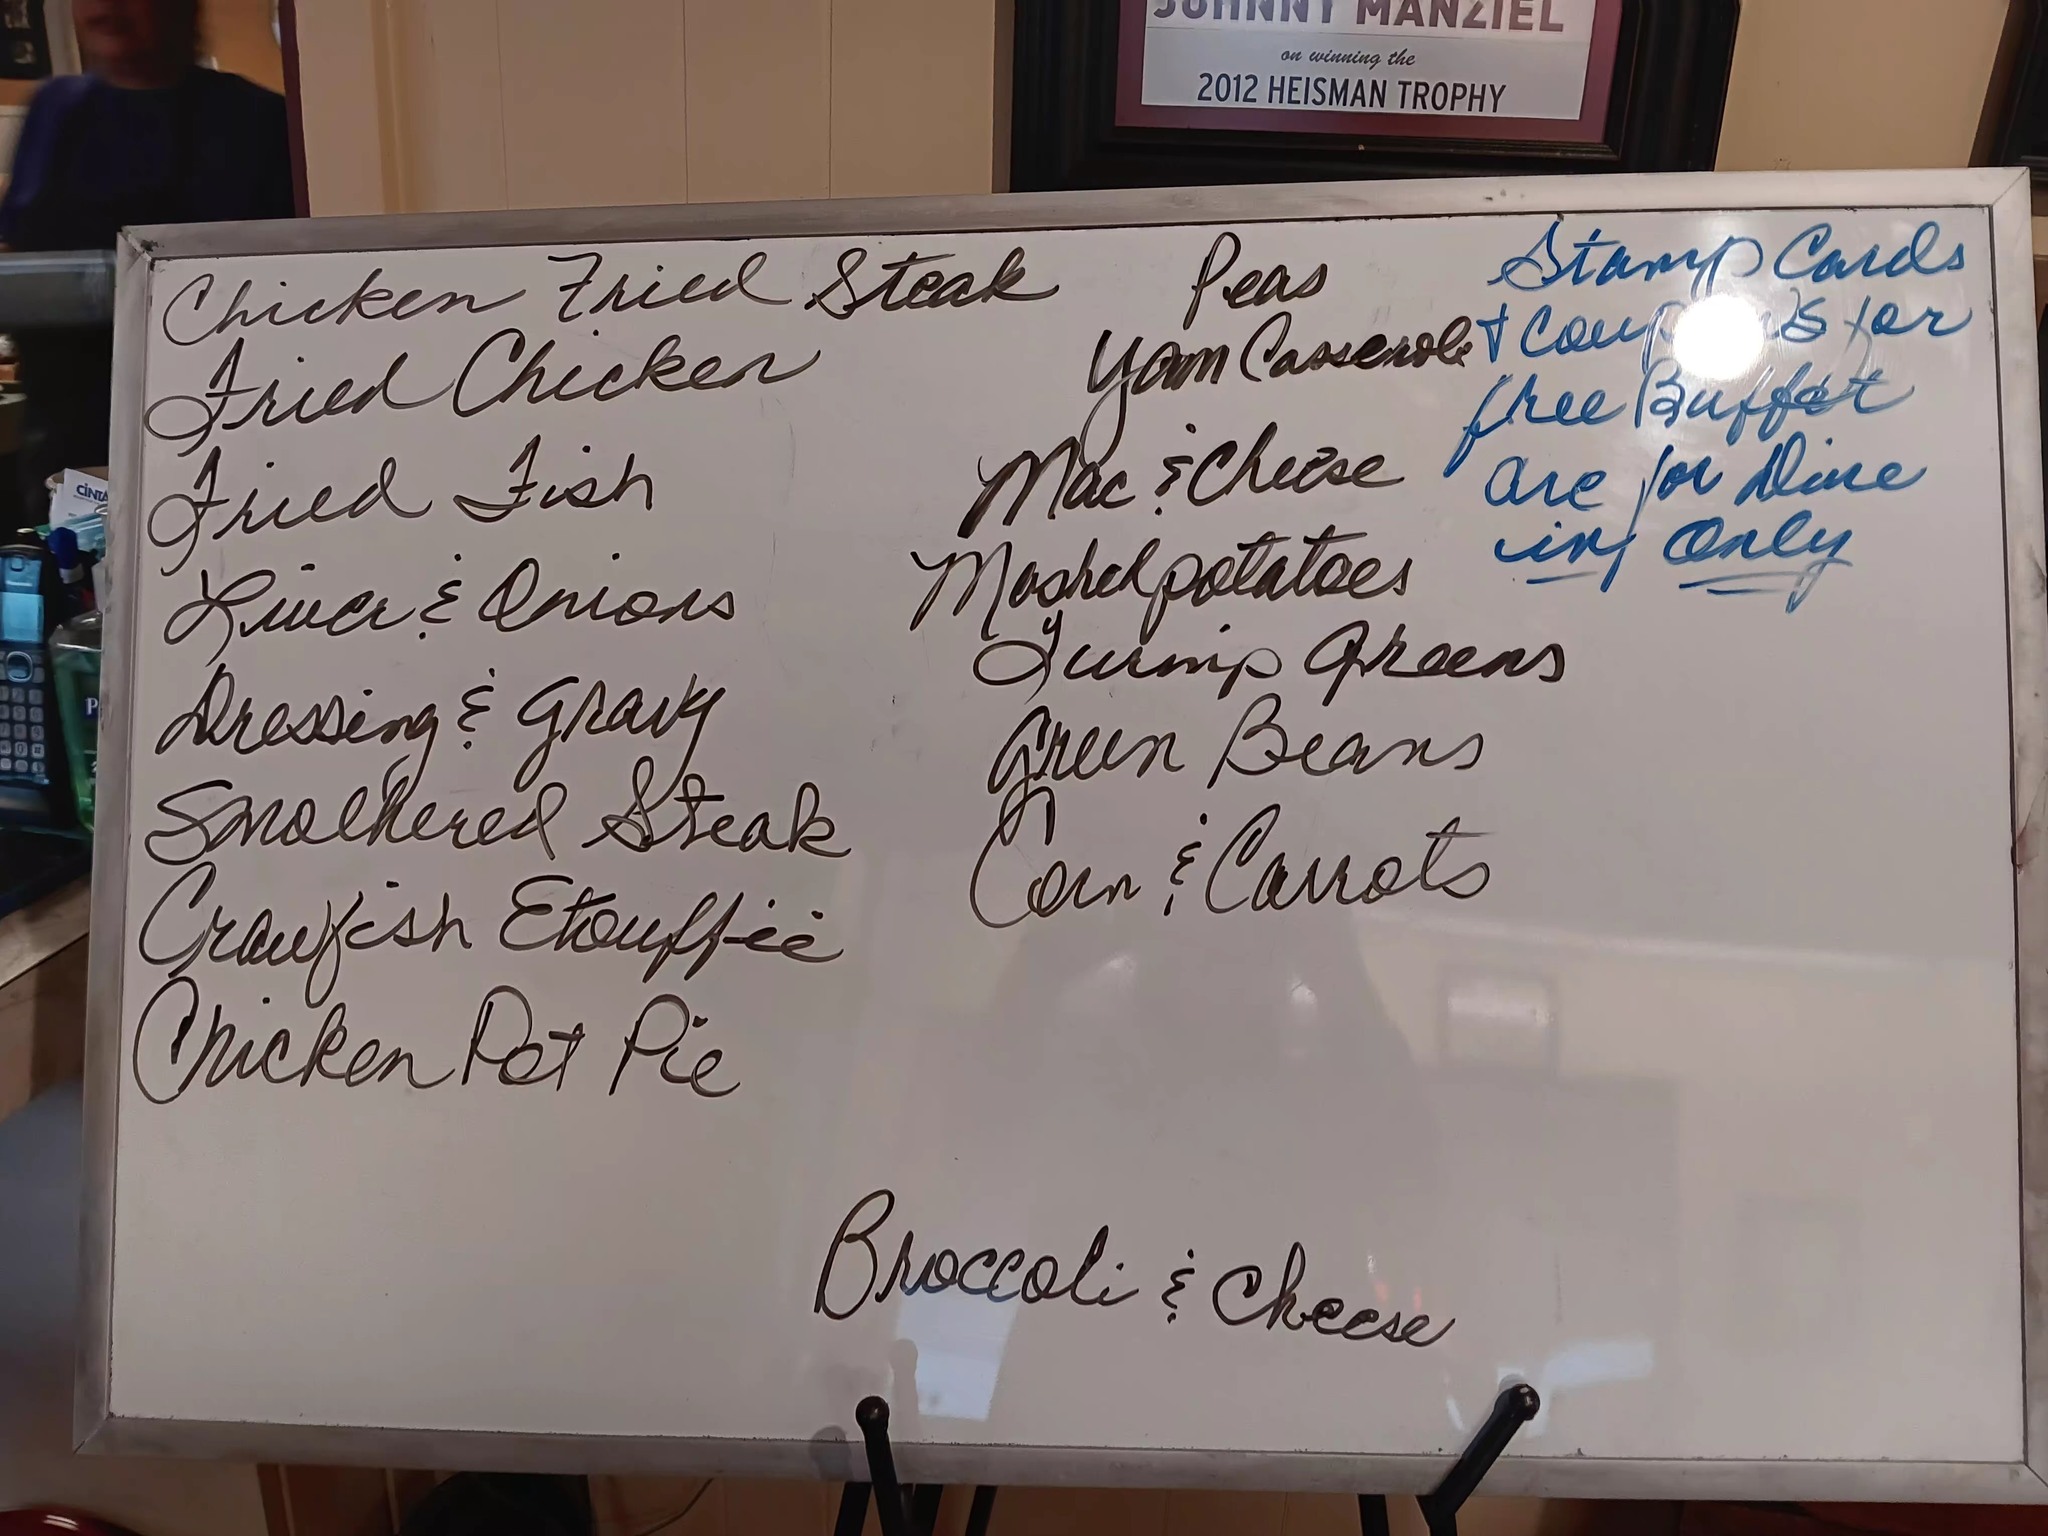 JOHNNY MANZIEL
on winning the
2012 HEISMAN TROPHY
Chicken Fried Steak
Fried Chicken
Fried Fish
Liver & Onions
Dressing & Gravy
Smothered Steak
Crawfish Etouffée
Chicken Pot Pie
Peas
Yam Casserole
Mac & Cheese
Mashed potatoes
Turnip Greens
Green Beans
Corn & Carrots
Broccoli & Cheese
Stamp Cards
+ Coupons for
free Buffet
are for Dine
in Only